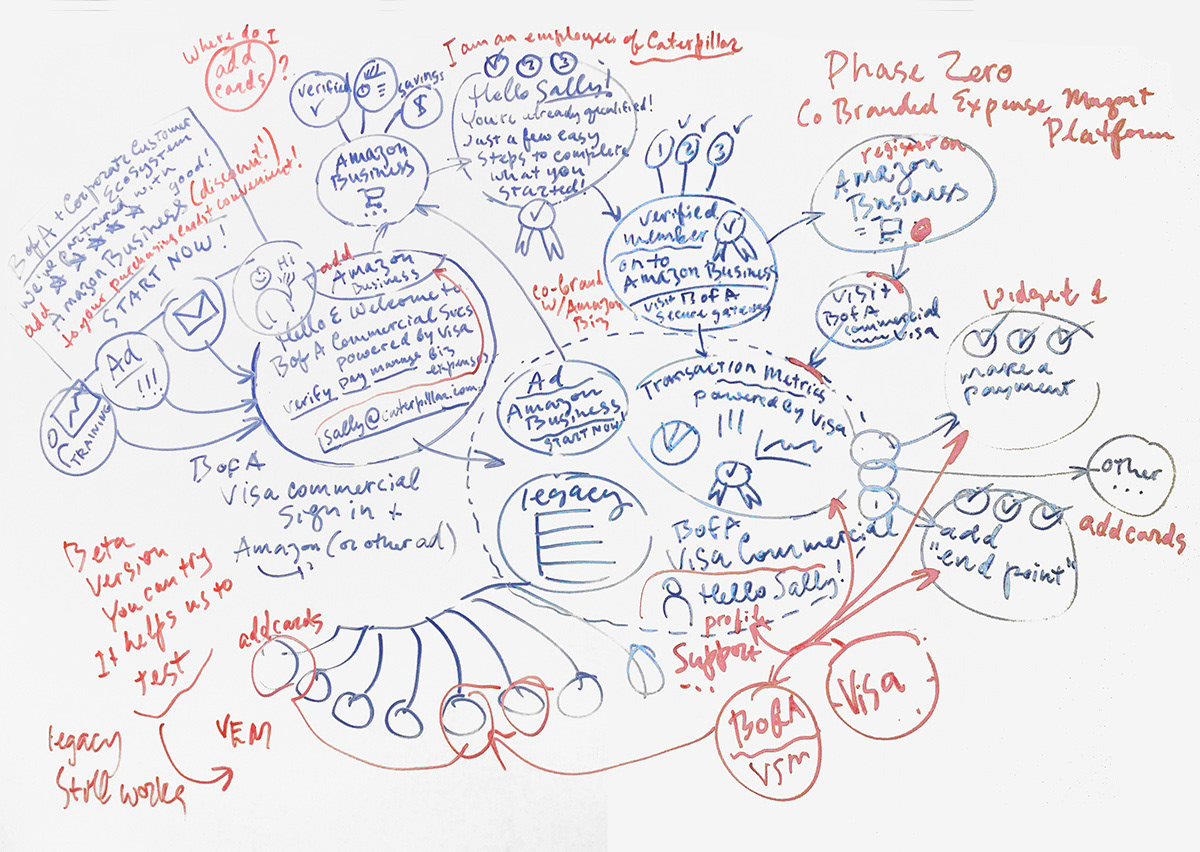 Where do I
add
cards
?
I am an employee of Caterpillar
Phase Zero
Co Branded Expense Magmt
Platform
verified
savings
$
1
2
3
Hello Sally!
You're already qualified!
Just a few easy
steps to complete
what you
started!
Amazon
Business
...
BofA + Corporate Customer
Ecosystem
We've partnered with
Amazon Business
good!
(discount!)
add
to your purchasing cards convenient!
START NOW!
Hi
add
Amazon
Business
Hello & Welcome to
BofA Commercial Svcs
powered by Visa
verify pay manage biz
expenses
sally@caterpillar.com
Ad
!!!
TRAINING
1
2
3
verified
member
on to
Amazon Business
visit BofA
secure gateway
co-brand
w/Amazon
Biz
register on
Amazon
Business
visit
BofA
commercial
visa
widget 1
make a
payment
Ad
Amazon
Business
START NOW!
Transaction Metrics
powered by Visa
other
...
add cards
add
"end point"
legacy
BofA
Visa Commercial
sign in +
Amazon (or other ad)
BofA
Visa Commercial
Hello Sally!
profile
Support
...
Beta
version
You can try
It helps us to
test
legacy
Still works
VEM
add cards
BofA
VSM
Visa